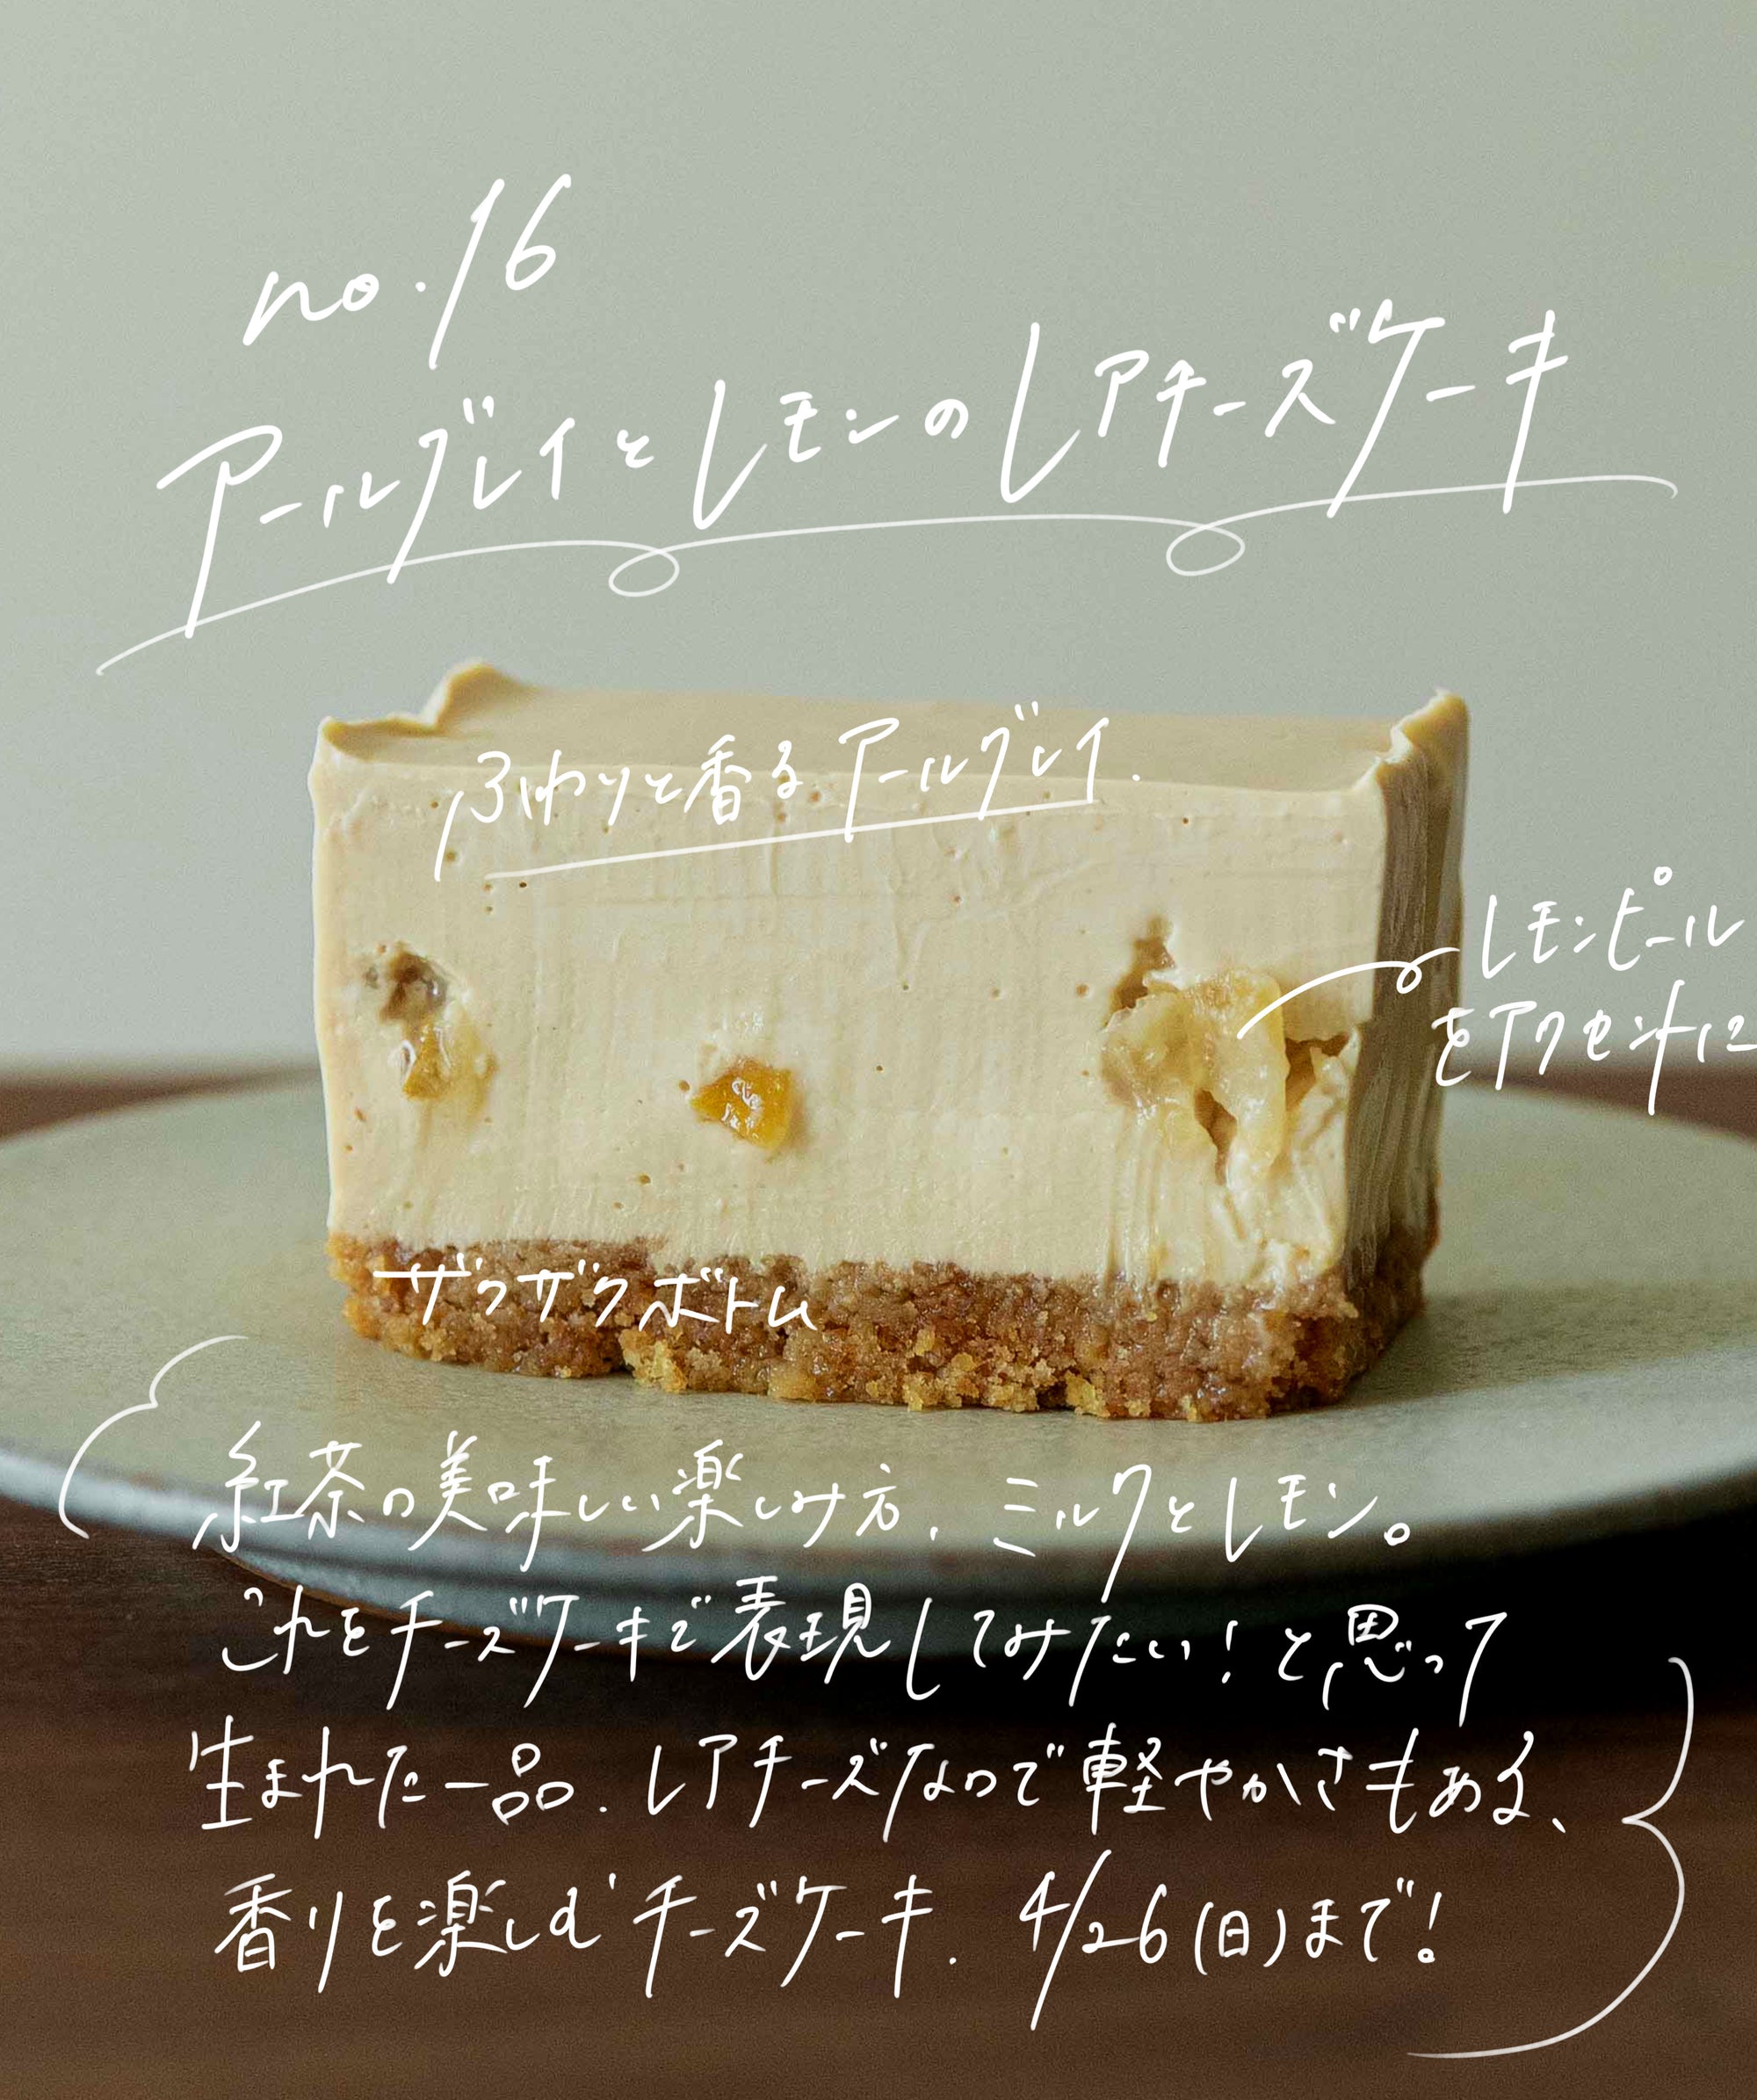 no.16
アールグレイとレモンのレアチーズケーキ
ふわりと香るアールグレイ.
レモンピール
をアクセントに
ザクザクボトム
紅茶の美味しい楽しみ方、ミルクとレモン。
これをチーズケーキで表現してみたい!と思って
生まれた一品.レアチーズなので軽やかさもある、
香りを楽しむチーズケーキ. 4/26(日)まで!